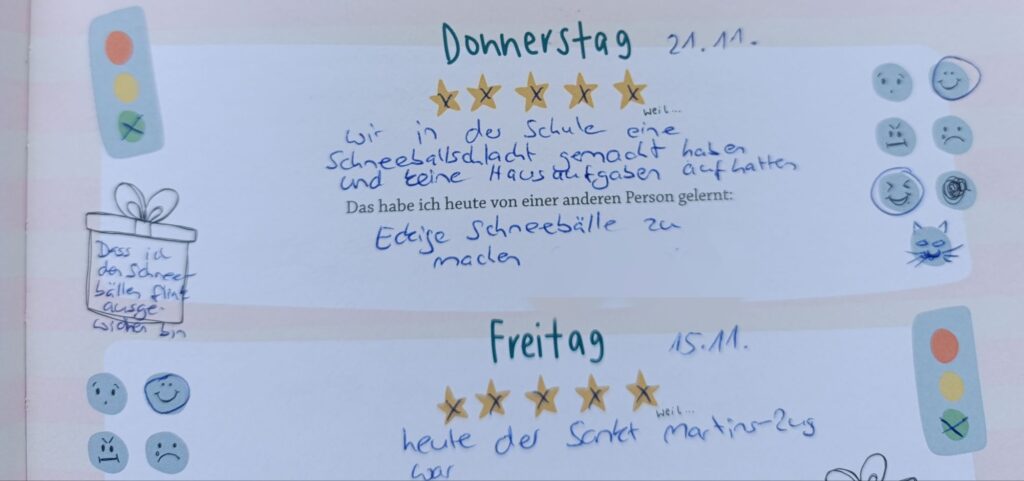 Donnerstag 21.11.
weil...
wir in der Schule eine
Schneeballschlacht gemacht haben
und keine Hausaufgaben aufhatten
Das habe ich heute von einer anderen Person gelernt:
Eckige Schneebälle zu
machen
Dass ich
den Schnee-
bällen flink
ausge-
wichen bin
Freitag 15.11.
weil...
heute der Sankt Martins-Zug
war